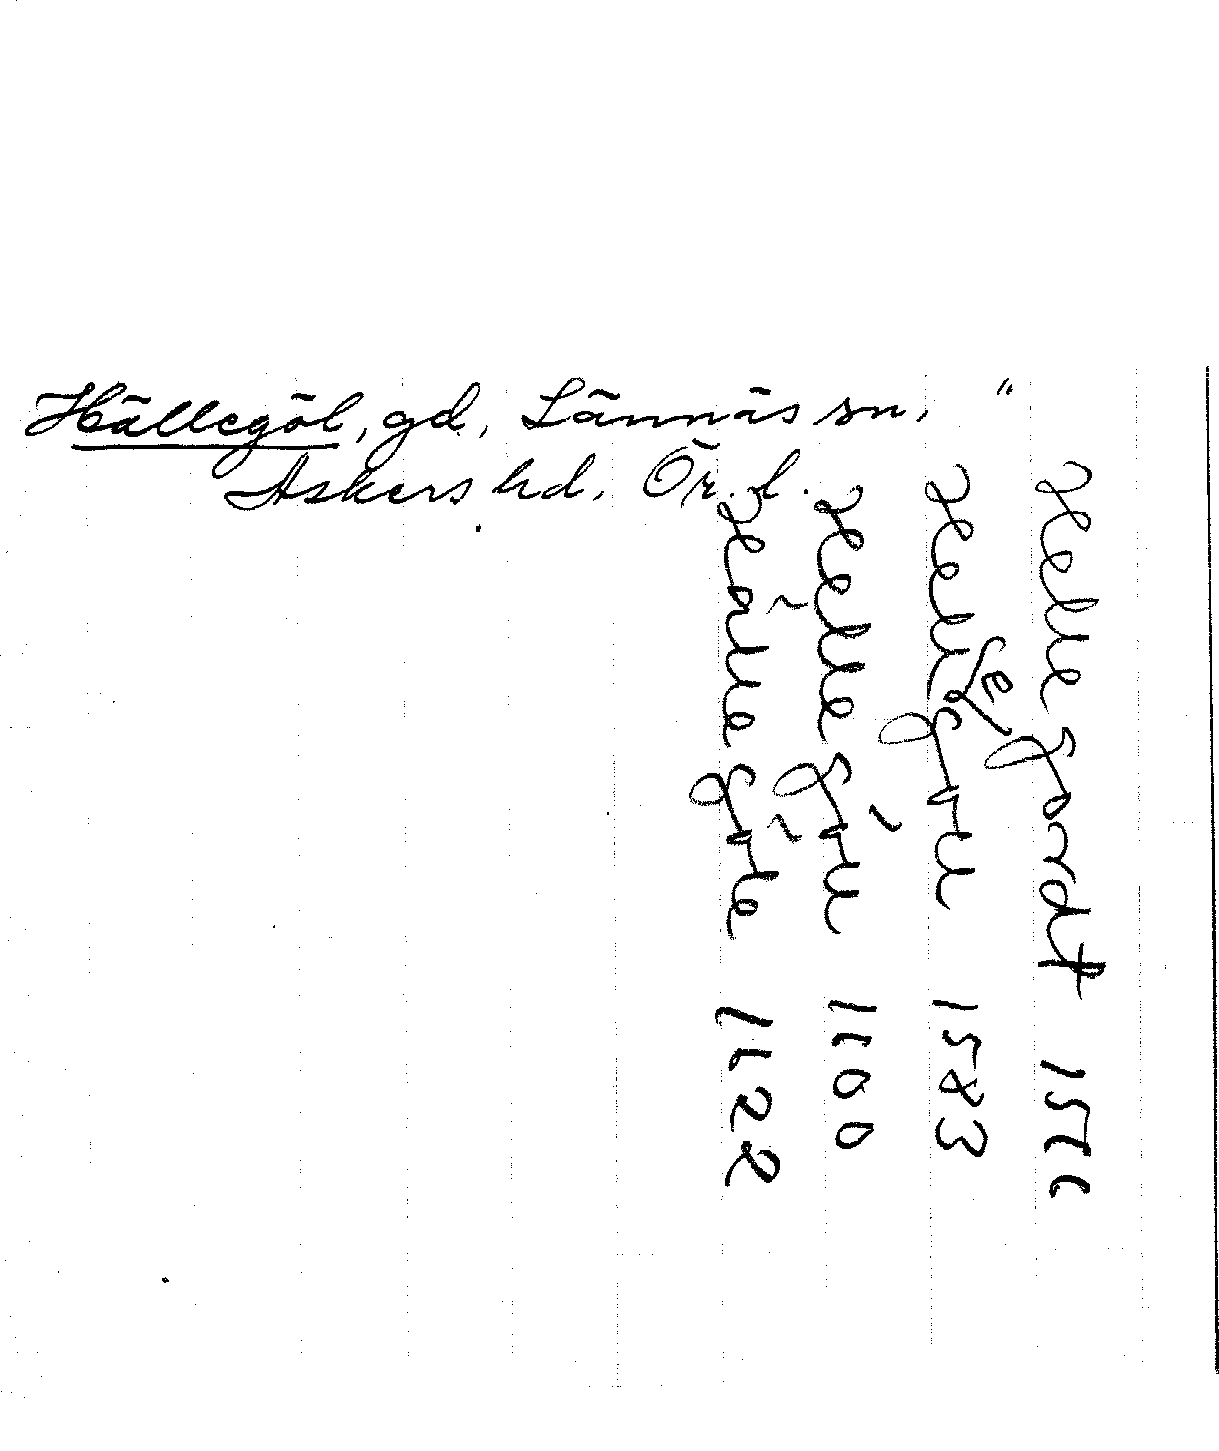 Hällegöl, gd, Lännäs sn,
Askers hd. Ör. l.
Hellegordt
Hellegoll 1583
Hellegöll 1600
Hällegöle 1622